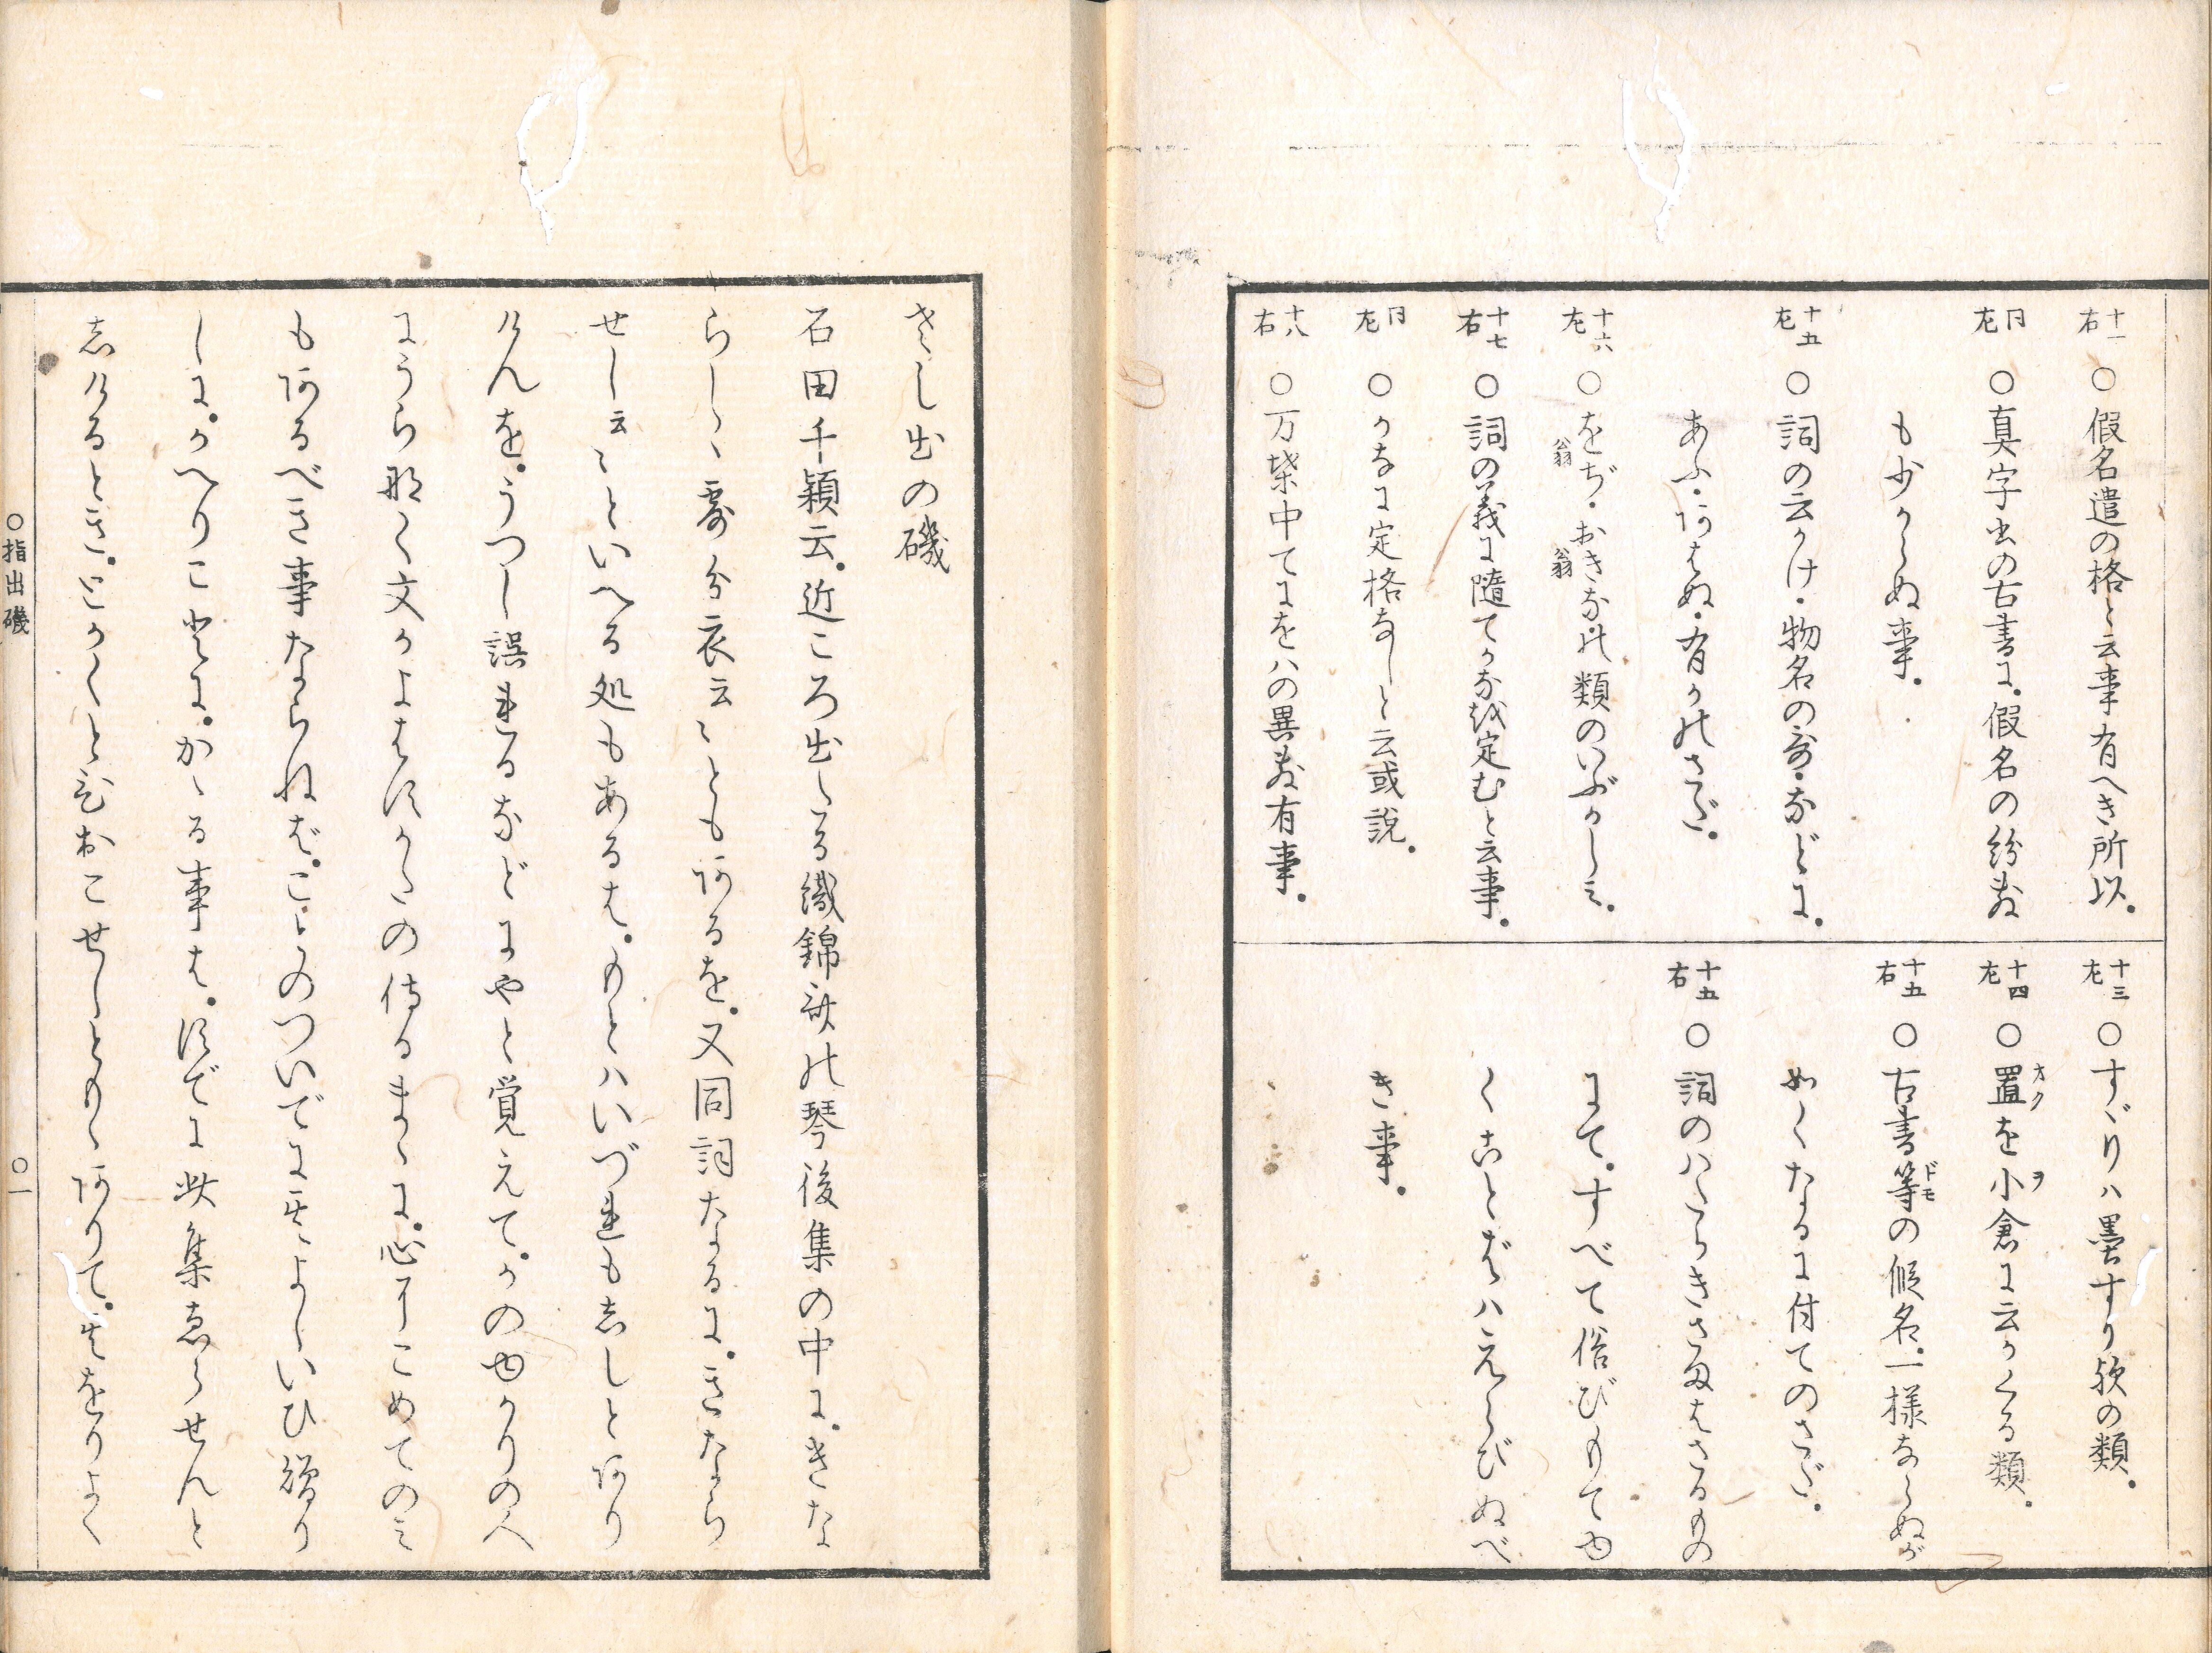 十一右 ○假名遣の格と云事有へき所以。
同左 ○真字書の古書に。假名の紛敷
も少からぬ事。
十五左 ○詞の云かけ・物名の哥・などに。
あふ・あはぬ・有かのさだ。
十六左 ○をぢ・おきな・の類のいぶかしミ。
翁 翁
十七右 ○詞の義に随てかな越定むと云事。
同左 ○かなに定格なしと云或説。
十八右 ○万葉中てにをハの異敷有事。
十三左 ○すゞりハ墨すり欤の類。
十四左 ○置を小倉に云かくる類。
オク ヲ
十五右 ○古書等の假名。一様ならぬが
ドモ
如くなるに付てのさだ。
十五右 ○詞のハたらきさまはさるもの
にて。すべて俗びもてゆ
くことばハえらびぬべ
き事。
さし出の磯
石田千頴云。近ころ出たる織錦斎の琴後集の中に。きな
らしゝ露分衣云〻ともあるを。又同詞なるに。きたなら
せし云〻といへる処もあるは。もとハいづれも志しとあり
けんを。うつし誤れるなどにやと覚えて。かのゆかりのへ
にうら那く文かよはすかたの侍るまゝに。心にこめてのミ
もあるべき事ならねば。ことのついでに其よしいひ贈り
しに。かへりことに。かゝる事は。すでに此集ゑらせんと
志けるとき。とかくと思おこせしともゝありて。其をりよく
○指出磯 ○一